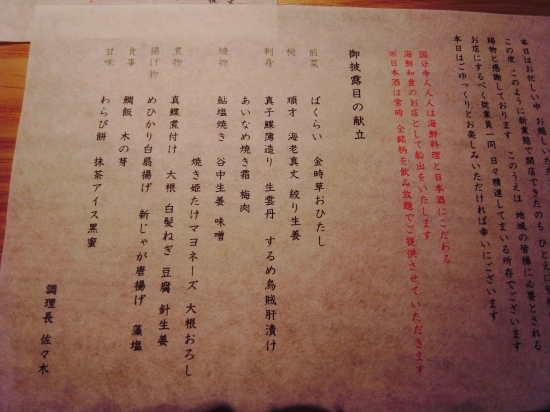 本日はお忙しい中 お越しいた
この度 このように新業態で開店できたのも ひとえに
賜物と感謝しております このうえは 地域の皆様に必要とされる
お店にするべく従業員一同 日々精進してまいる所存でございます
本日はごゆっくりとお楽しみいただければ幸いでございます
国分寺人人人は海鮮料理と日本酒にこだわる
海鮮和食のお店として船出をいたします
※日本酒は常時 全銘柄を飲み放題でご提供させていただきます
御披露目の献立
前菜 ばくらい 金時草おひたし
椀 順才 海老真丈 絞り生姜
刺身 真子鰈薄造り 生雲丹 するめ烏賊肝漬け
あいなめ焼き霜 梅肉
焼物 鮎塩焼き 谷中生姜 味噌
焼き姫たけマヨネーズ 大根おろし
煮物 真鰈煮付け 大根 白髪ねぎ 豆腐 針生姜
揚げ物 めひかり白扇揚げ 新じゃが唐揚げ 藻塩
食事 鯛飯 木の芽
甘味 わらび餅 抹茶アイス黒蜜
調理長 佐々木